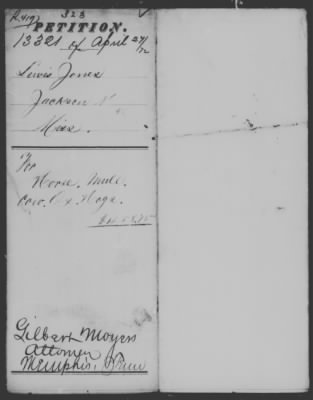 323
R 419
PETITION.
13321 of April 27/72
Lewis Jones
Jackson
Miss.
For
Horse, Mule,
Cow, Ox, Hogs.
Gilbert Moyers
Attorney
Memphis, Tenn